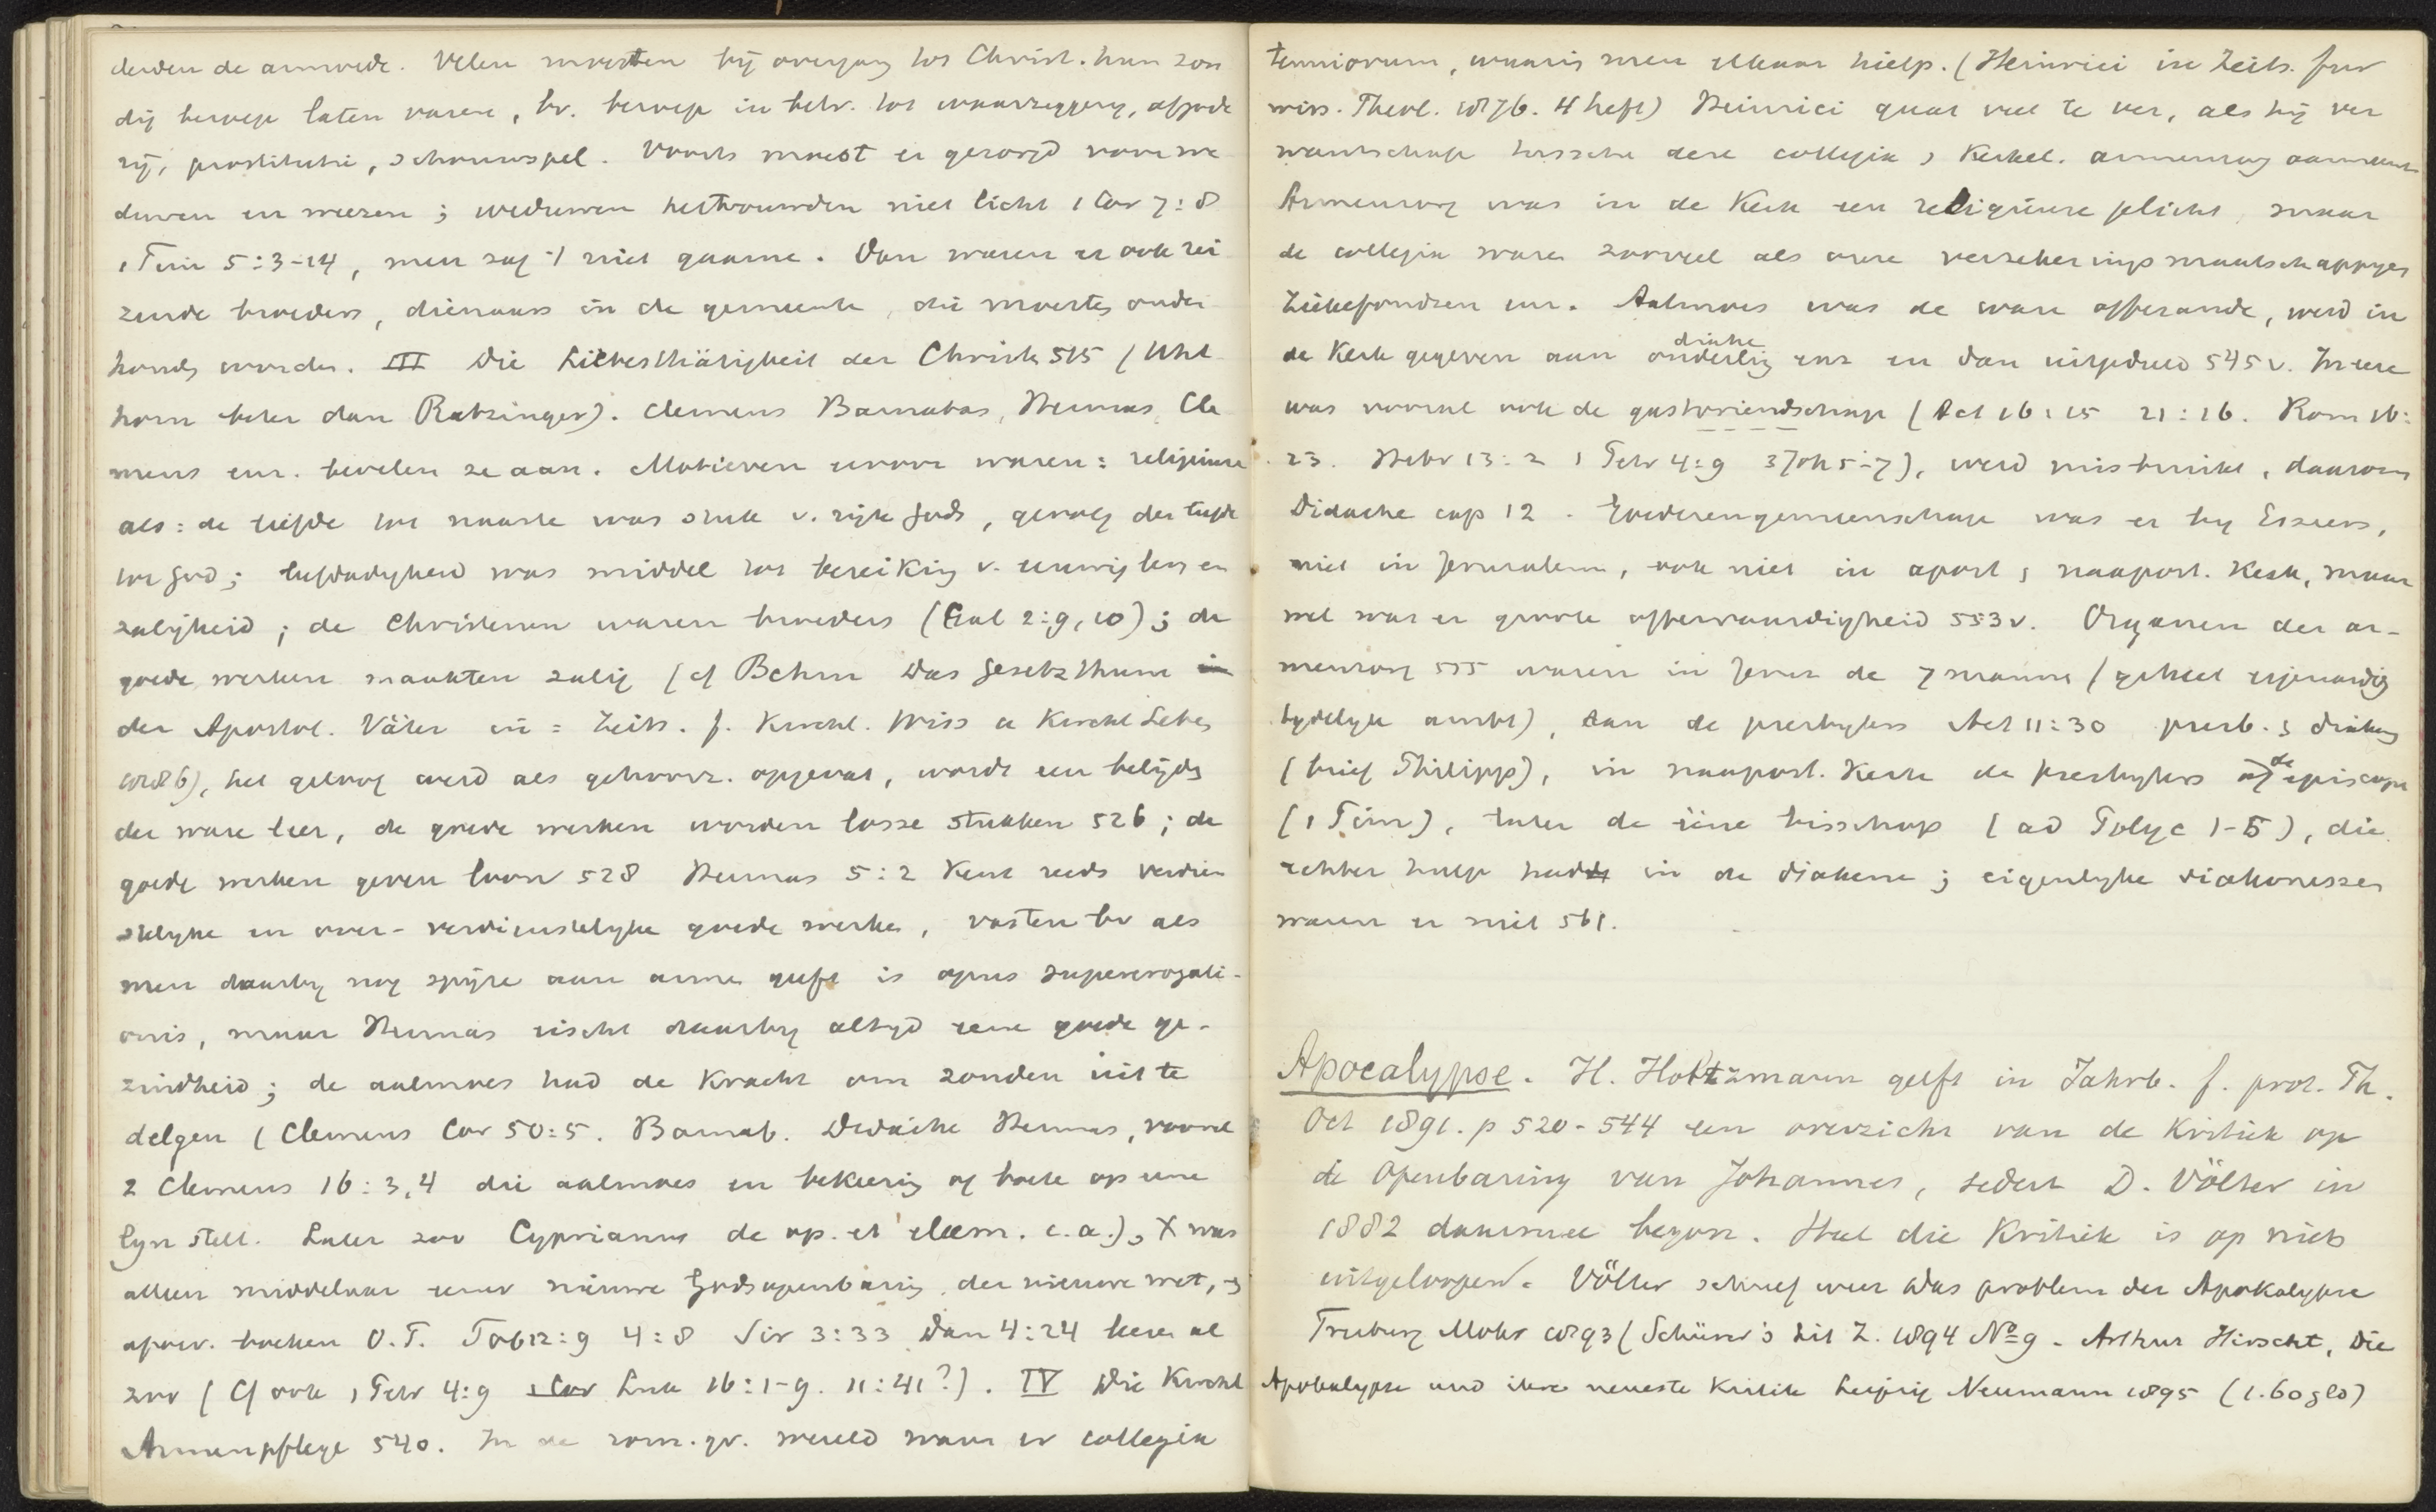 derden de armoede. Velen moesten bij overgang tot Christ. hun zon
dig beroep laten varen, bv. beroep in betr. tot waarzeggerij, afgode
rij, prostitutie, schouwspel. Voorts moest er gezorgd voor we
duwen en weezen; weduwen hertrouwden niet licht 1 Cor 7:8
1 Tim 5:3-14, men zag 't niet gaarne. Dan waren er ook rei
zende broeders, dienaars in de gemeente, die moesten onder
houdn worden. III Die Liebesthätigkeit der Christn 515 (Uhl
horn beter dan Ratzinger). Clemens Barnabas, Hermas, Cle
mens enz. bevelen ze aan. Motieven ervoor waren: religieuse
als: de liefde tot naaste was stuk v. rijk Gods, gevolg der liefde
tot God; liefdadigheid was middel tot bereiking v. eeuwig leven
zaligheid; de Christenen waren broeders (Gal 2:9,10); de
goede werken maakten zalig (cf Behm Das Gesetzthum
der Apostol. Väter in = Zeits. f. Kirchl. Wiss u Kirchl Leben
1886), het geloof werd als gehoorz. opgevat, wordt een belijdg
der ware leer, de goede werken worden losse stukken 526; de
goede werken geven loon 528 Hermas 5:2 kent reeds verdien
stelijke en over-verdienstelijke goede werken, vasten bv als
men daarbij nog spijze aan armen geeft is opus supererogati-
onis, maar Hermas eischt daarbij altijd eene goede ge-
zindheid; de aalmoes had de kracht om zonden uit te
delgen (Clemens Cor 50:5. Barnab. Didache Hermas, vooral
2 Clemens 16:3,4 die aalmoes en bekeering of boete op eene
lijn stelt. Later zoo Cyprianus de op. et eleem. e.a.), X was
alleen middelaar eener nieuwe Godsopenbaring, der nieuwe wet, en
apocr. boeken O.T. Tob 12:9 4:8 Sir 3:33 Dan 4:24 leeren al
zoo (Cf ook 1 Petr 4:9 1 Cor Luk 16:1-9. 11:41?). IV Die Kirchl
Armenpflege 540. In de rom.gr. wereld waren er collegia
tenuiorum, waarin men elkaar hielp. (Heinrici in Zeits. fur
wiss. Theol. 1876. 4 heft) Heinrici gaat veel te ver, als hij ver
wantschap tusschen deze collegia & Kerkel. armenzorg aanneemt
Armenzorg was in de Kerk een religieuse plicht, maar
de collegia waren zooveel als onze verzekeringsmaatschappijen
Ziekefondsen enz. Aalmoes was de ware offerande, werd in
de Kerk gegeven aan diaken ouderling enz en dan uitgedeeld 545v. In eere
was vooral ook de gastvriendschap (Act 16:15 21:16. Rom 16:
23. Hebr 13:2 1 Petr 4:9 3 Joh 5-7), werd misbruikt, daarom
Didache cap 12. Goederengemeenschap was er bij Esseers,
niet in Jeruzalem, ook niet in apost & naapost. Kerk, maar
wel was er groote offervaardigheid 553v. Organen der ar-
menzorg 555 waren in Jeruz de 7 mannen (geheel eigenaardig
tijdelijk ambt), dan de presbyters Act 11:30 presb. & diaken
(brief Philipp), in naapost. Kerk de presbyters of de episcopen
(1 Tim), later de eene bisschop (ad Polyc 1-5), die
echter hulp had in de diakenen; eigenlijke diakonessen
waren er niet 561.
Apocalypse. H. Holtzmann geeft in Jahrb. f. prot. Th.
Oct 1891. p 520-544 een overzicht van de Kritiek op
de Openbaring van Johannes, sedert D. Völter in
1882 daarmee begon. Heel die Kritiek is op niets
uitgeloopen. Völter schreef weer Das problem der Apokalypse
Freiburg Mohr 1893 (Schürer's Lit Z. 1894 No 9 - Arthur Hirscht, Die
Apokalypse und ihre neueste Kritik Leipzig Neumann 1895 (1.60 gld)